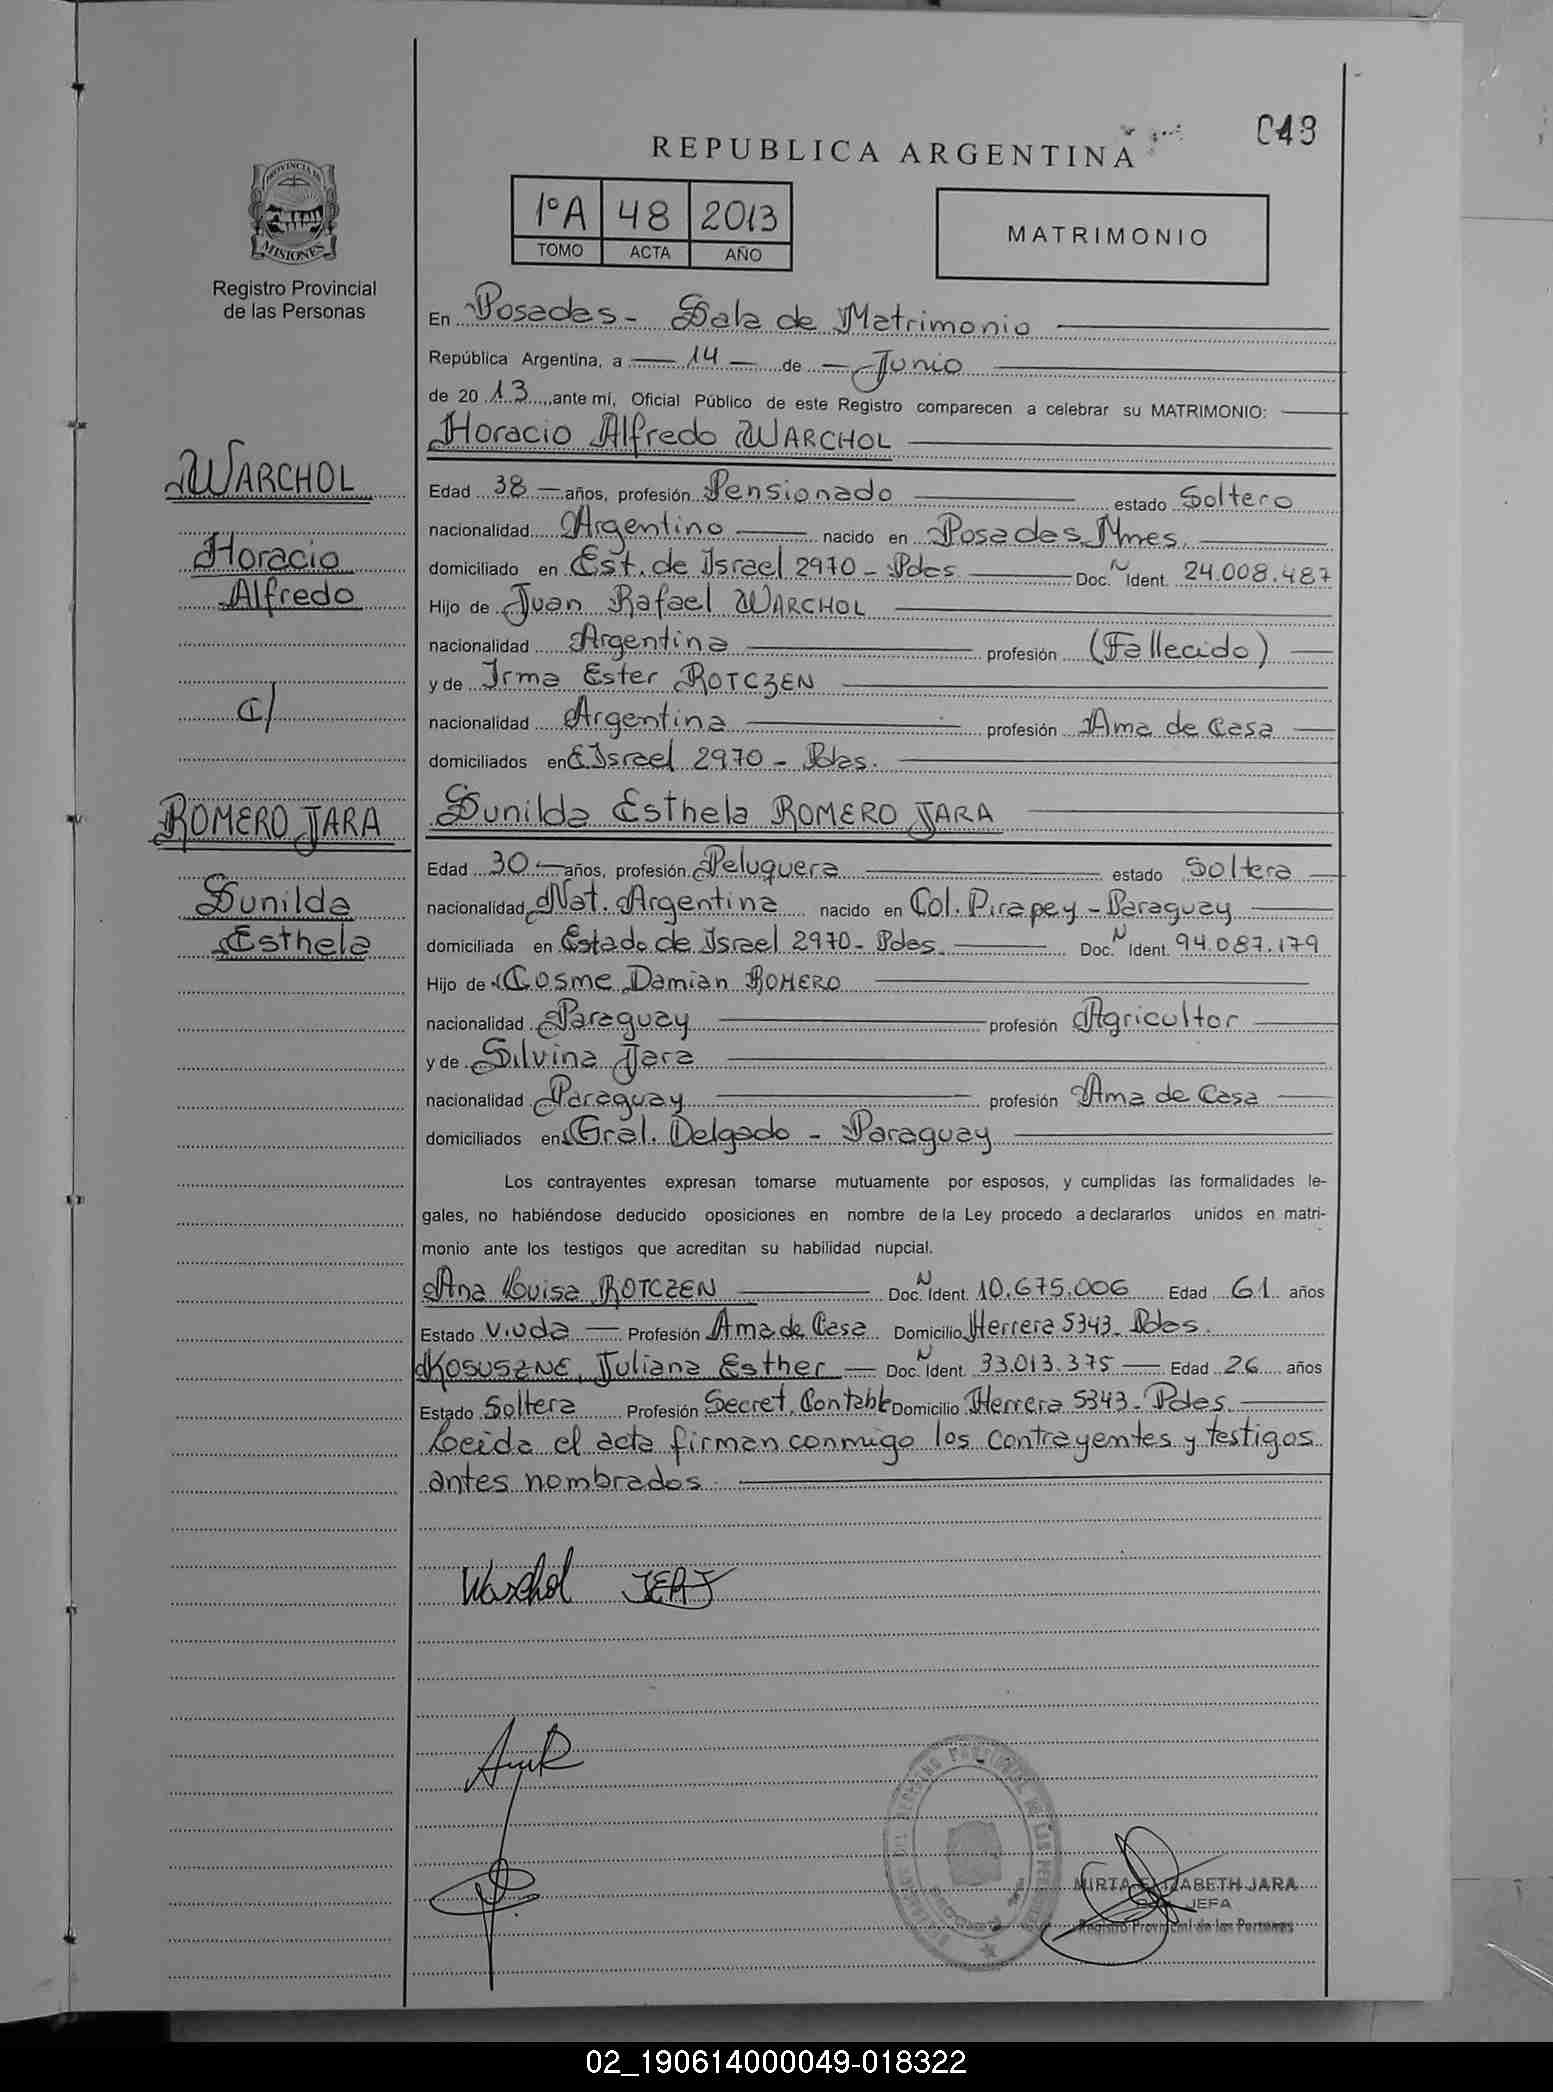 048
REPUBLICA ARGENTINA
PROVINCIA DE
MISIONES
Registro Provincial
de las Personas
1ºA 48 2013
TOMO ACTA AÑO
MATRIMONIO
En Posadas - Sala de Matrimonio
República Argentina, a 14 de Junio
de 20 13 ante mí, Oficial Público de este Registro comparecen a celebrar su MATRIMONIO:
Horacio Alfredo WARCHOL
WARCHOL
Horacio
Alfredo
c/
ROMERO JARA
Sunilda
Esthela
Edad 38 años, profesión Pensionado estado Soltero
nacionalidad Argentino nacido en Posadas Mnes.
domiciliado en Est. de Israel 2970 - Pdas. Doc. N Ident. 24.008.487
Hijo de Juan Rafael WARCHOL
nacionalidad Argentina profesión (Fallecido)
y de Irma Ester ROTCZEN
nacionalidad Argentina profesión Ama de Casa
domiciliados en E Israel 2970 - Pdas.
Sunilda Esthela ROMERO JARA
Edad 30 años, profesión Peluquera estado Soltera
nacionalidad Nat. Argentina nacido en Col. Pirapey - Paraguay
domiciliada en Estado de Israel 2970 - Pdas. Doc. N Ident. 94.087.179
Hijo de Cosme Damian ROMERO
nacionalidad Paraguay profesión Agricultor
y de Silvina Jara
nacionalidad Paraguay profesión Ama de Casa
domiciliados en Gral. Delgado - Paraguay
Los contrayentes expresan tomarse mutuamente por esposos, y cumplidas las formalidades le-
gales, no habiéndose deducido oposiciones en nombre de la Ley procedo a declararlos unidos en matri-
monio ante los testigos que acreditan su habilidad nupcial.
Ana Luisa ROTCZEN Doc. N Ident. 10.675.006 Edad 61 años
Estado Viuda Profesión Ama de Casa Domicilio Herrera 5343 - Pdas.
KOSUSZNE, Juliana Esther Doc. N Ident. 33.013.375 Edad 26 años
Estado Soltera Profesión Secret. Contable Domicilio Herrera 5343 - Pdas.
Leida el acta firman conmigo los contrayentes y testigos
antes nombrados
Warchol JERJ
MIRTA ELIZABETH JARA
JEFA
Registro Provincial de las Personas
02_190614000049-018322